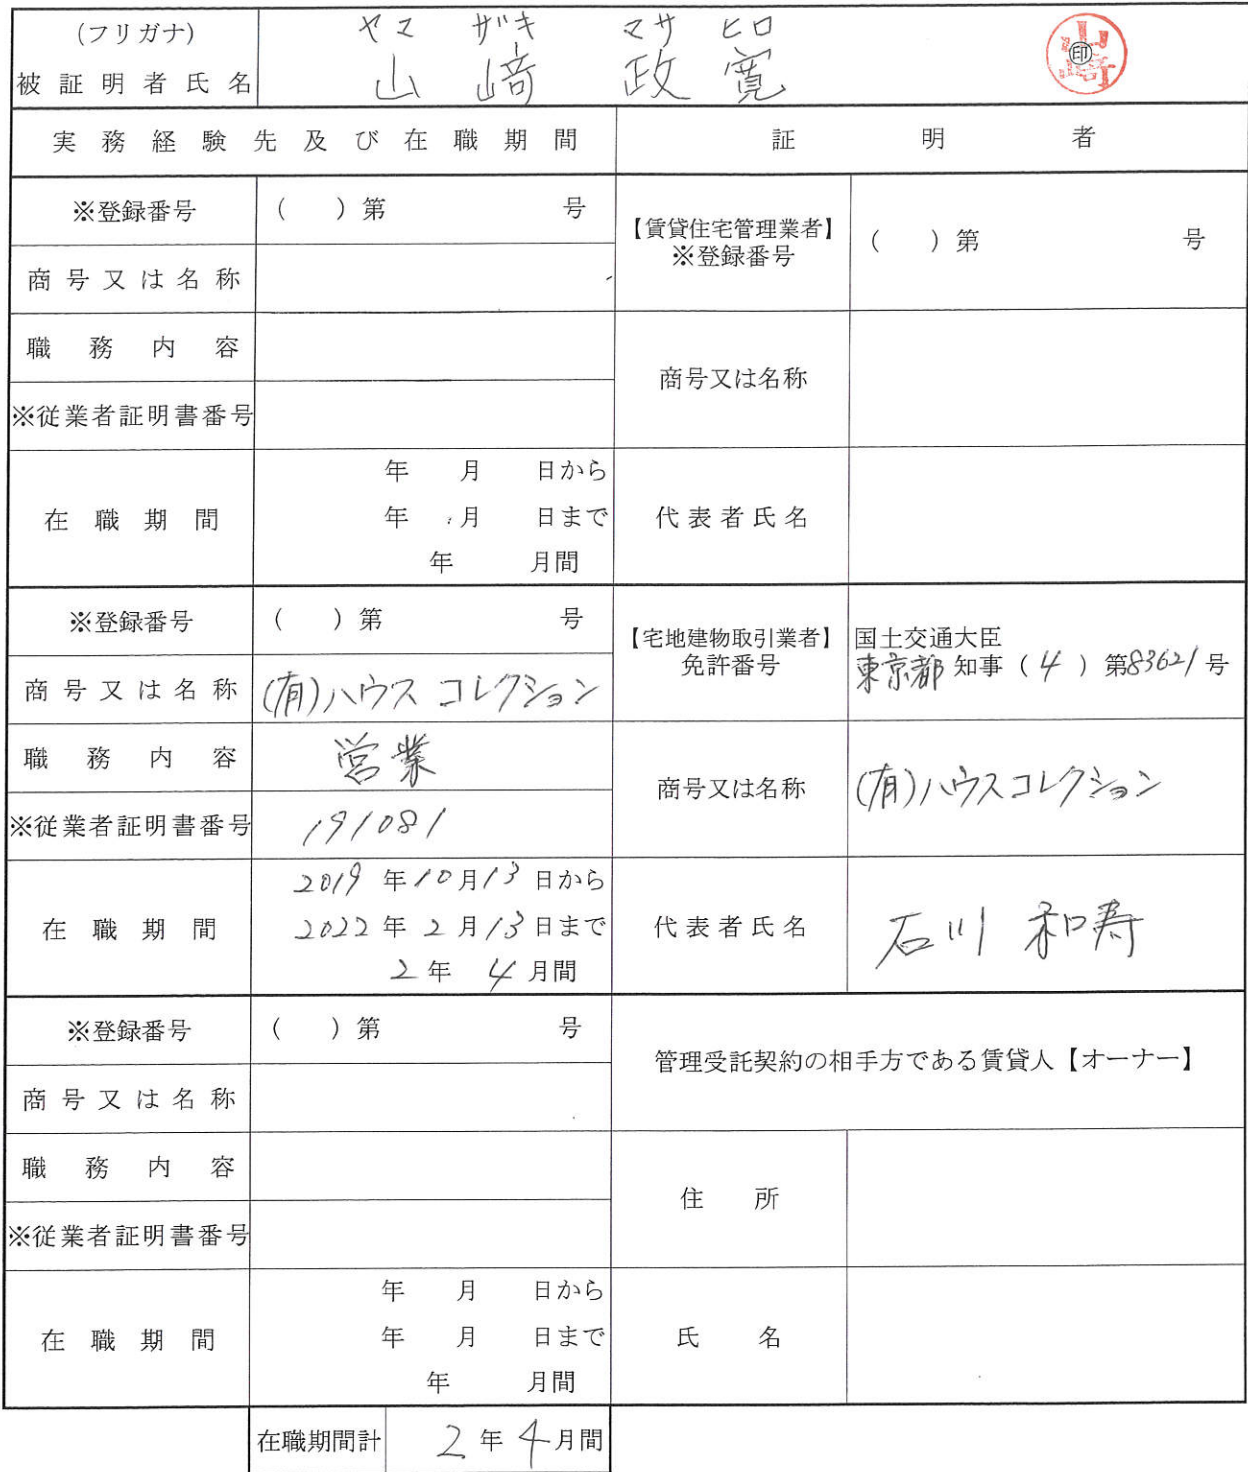 (フリガナ) ヤマ ザキ マサ ヒロ
被証明者氏名 山﨑 政寛 ㊞ 山﨑
実務経験先及び在職期間 証明者
※登録番号 ( ) 第 号 【賃貸住宅管理業者】 ※登録番号 ( ) 第 号
商号又は名称
職務内容 商号又は名称
※従業者証明書番号
在職期間 年 月 日から 代表者氏名
年 月 日まで
年 月間
※登録番号 ( ) 第 号 【宅地建物取引業者】 免許番号 国土交通大臣
東京都 知事 ( 4 ) 第83621号
商号又は名称 (有)ハウスコレクション
職務内容 営業 商号又は名称 (有)ハウスコレクション
※従業者証明書番号 191081
在職期間 2019年10月13日から 代表者氏名 石川 和寿
2022年2月13日まで
2年 4月間
※登録番号 ( ) 第 号 管理受託契約の相手方である賃貸人【オーナー】
商号又は名称
職務内容 住所
※従業者証明書番号
在職期間 年 月 日から 氏名
年 月 日まで
年 月間
在職期間計 2年4月間